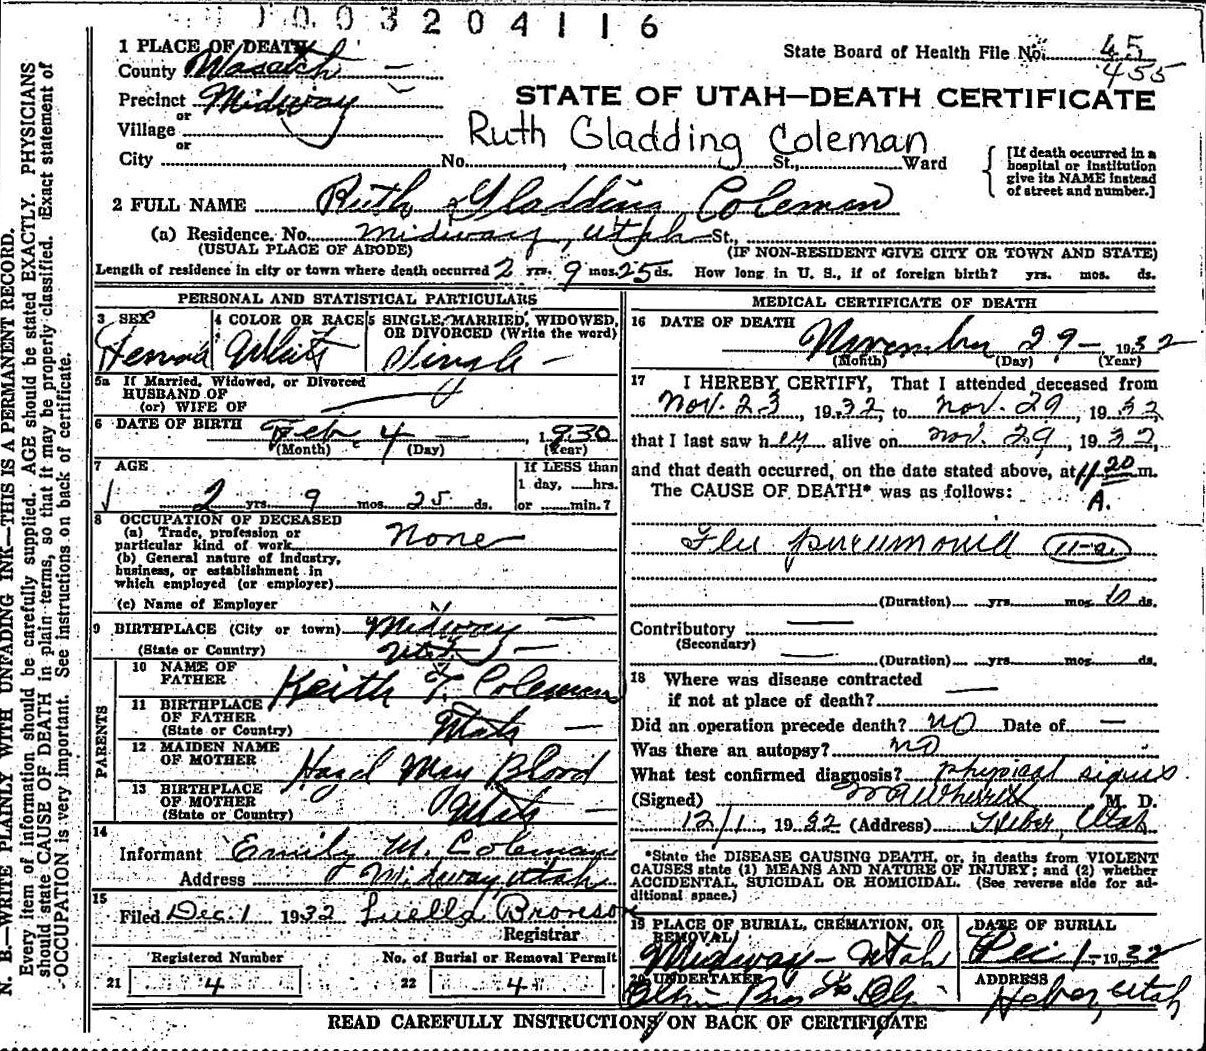 1003204116
1 PLACE OF DEATH
State Board of Health File No. 45
455
County Wasatch
Precinct Midway
or
Village
or
City No. , St., Ward
STATE OF UTAH—DEATH CERTIFICATE
Ruth Gladding Coleman
[If death occurred in a
hospital or institution
give its NAME instead
of street and number.]
2 FULL NAME Ruth Gladding Coleman
(a) Residence. No. Midway, Utah St.,
(USUAL PLACE OF ABODE) (IF NON-RESIDENT GIVE CITY OR TOWN AND STATE)
Length of residence in city or town where death occurred 2 yrs. 9 mos. 25 ds. How long in U. S., if of foreign birth? yrs. mos. ds.
PERSONAL AND STATISTICAL PARTICULARS
3 SEX 4 COLOR OR RACE 5 SINGLE, MARRIED, WIDOWED,
OR DIVORCED (Write the word)
Female White Single
5a If Married, Widowed, or Divorced
HUSBAND OF
(or) WIFE OF
6 DATE OF BIRTH Feb. 4 — , 1930
(Month) (Day) (Year)
7 AGE If LESS than
1 day, hrs.
2 yrs. 9 mos. 25 ds. or min.?
8 OCCUPATION OF DECEASED
(a) Trade, profession or
particular kind of work None
(b) General nature of Industry,
business, or establishment in
which employed (or employer)
(c) Name of Employer
9 BIRTHPLACE (City or town) Midway —
(State or Country) Utah —
PARENTS
10 NAME OF
FATHER Keith F. Coleman
11 BIRTHPLACE
OF FATHER
(State or Country) Utah —
12 MAIDEN NAME
OF MOTHER Hazel May Blood
13 BIRTHPLACE
OF MOTHER
(State or Country) Utah —
14
Informant Emily M. Coleman
Address Midway, Utah
15
Filed Dec. 1 1932 Luella Bronson
Registrar
Registered Number No. of Burial or Removal Permit
21 4 22 4
MEDICAL CERTIFICATE OF DEATH
16 DATE OF DEATH
November 29 — 1932
(Month) (Day) (Year)
17 I HEREBY CERTIFY, That I attended deceased from
Nov. 23, 1932, to Nov. 29, 1932
that I last saw her alive on Nov. 29, 1932,
and that death occurred, on the date stated above, at 11 20 m.
The CAUSE OF DEATH* was as follows: A.
Flu pneumonia 11-a
(Duration) yrs. mos. 10 ds.
Contributory —
(Secondary)
— (Duration) yrs. mos. ds.
18 Where was disease contracted
if not at place of death? —
Did an operation precede death? no Date of —
Was there an autopsy? no
What test confirmed diagnosis? physical signs
(Signed) M. D.
12/1, 1932 (Address) Heber, Utah
*State the DISEASE CAUSING DEATH, or, in deaths from VIOLENT
CAUSES state (1) MEANS AND NATURE OF INJURY; and (2) whether
ACCIDENTAL, SUICIDAL OR HOMICIDAL. (See reverse side for ad-
ditional space.)
19 PLACE OF BURIAL, CREMATION, OR
REMOVAL
DATE OF BURIAL
Midway — Utah Dec 1 — 1932
20 UNDERTAKER ADDRESS
Bros Heber, Utah
READ CAREFULLY INSTRUCTIONS ON BACK OF CERTIFICATE
N. B.—WRITE PLAINLY WITH UNFADING INK—THIS IS A PERMANENT RECORD.
Every item of information should be carefully supplied. AGE should be stated EXACTLY. PHYSICIANS
should state CAUSE OF DEATH in plain terms, so that it may be properly classified. Exact statement of
OCCUPATION is very important. See instructions on back of certificate.